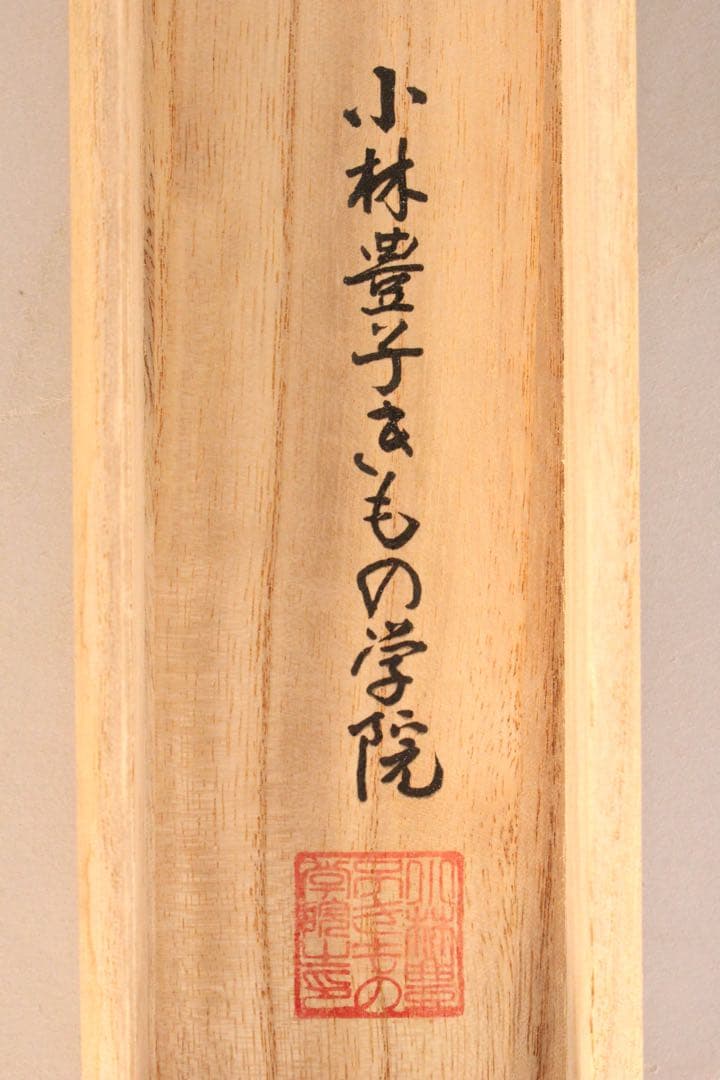 小林豊子きもの学院
小林豊
子きもの
学院之印